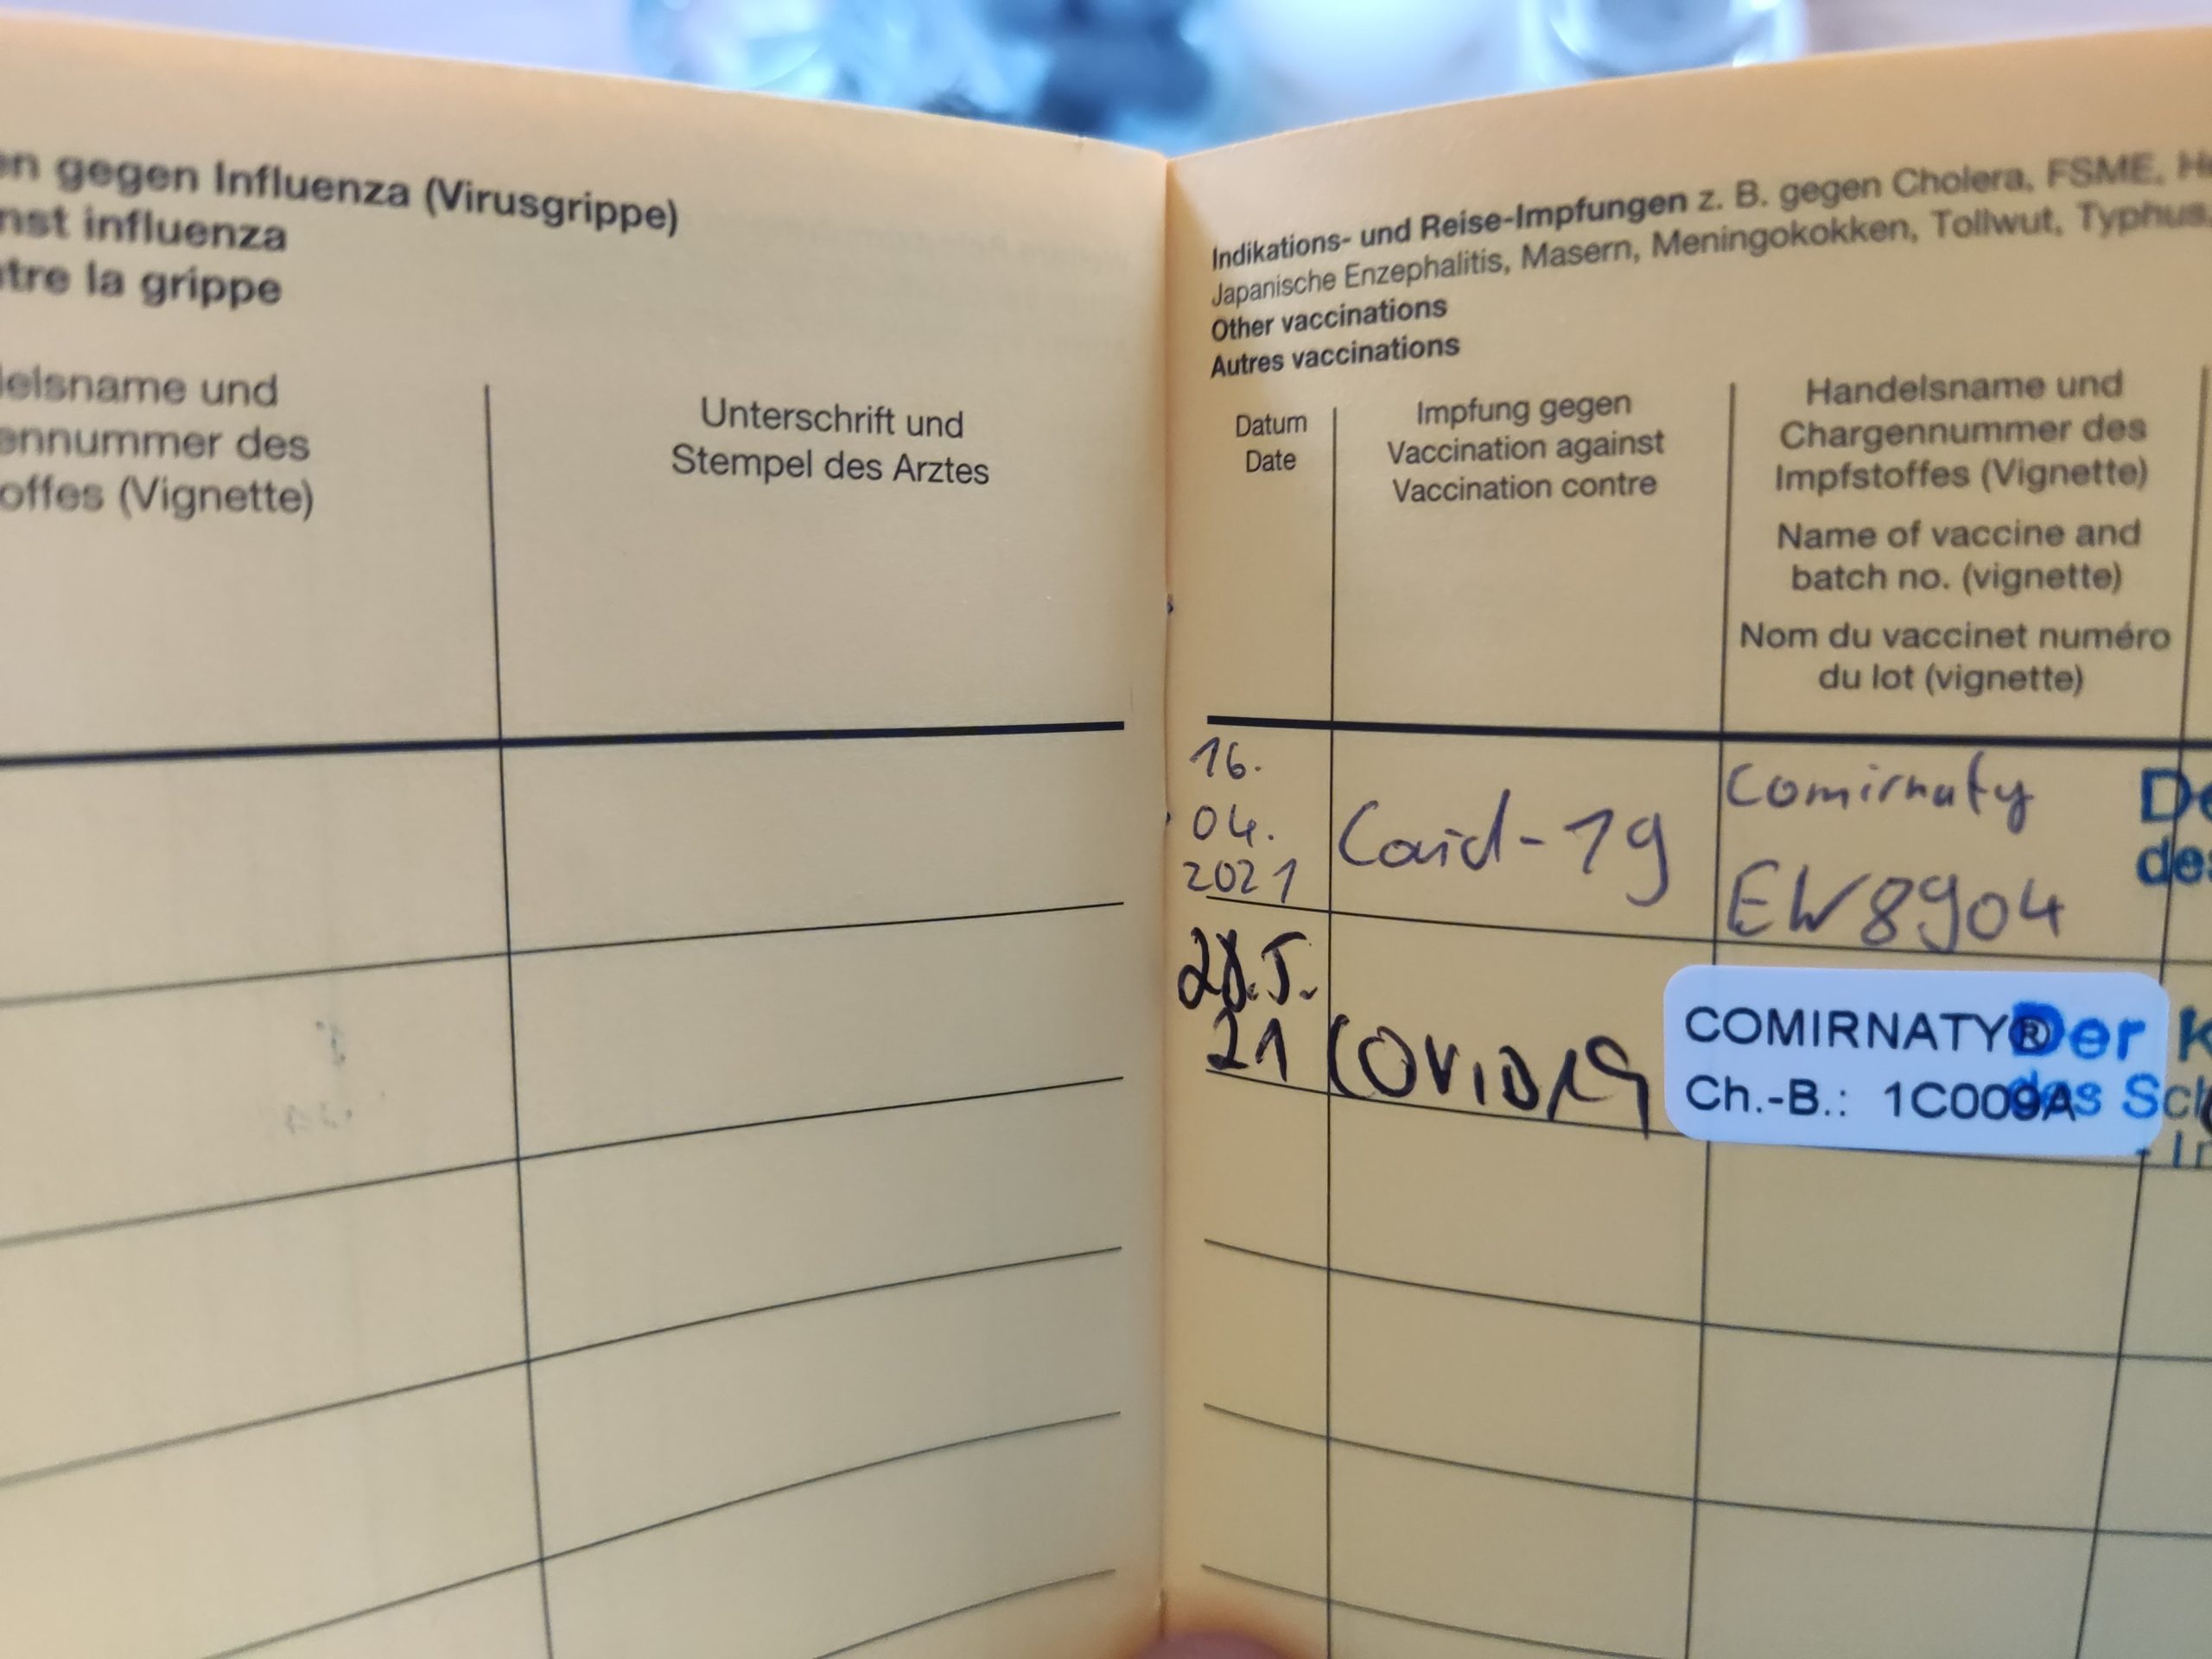 en gegen Influenza (Virusgrippe)
nst influenza
tre la grippe
elsname und
ennummer des
offes (Vignette)
Unterschrift und
Stempel des Arztes
Indikations- und Reise-Impfungen z. B. gegen Cholera, FSME, He
Japanische Enzephalitis, Masern, Meningokokken, Tollwut, Typhus,
Other vaccinations
Autres vaccinations
Datum
Date
Impfung gegen
Vaccination against
Vaccination contre
Handelsname und
Chargennummer des
Impfstoffes (Vignette)
Name of vaccine and
batch no. (vignette)
Nom du vaccinet numéro
du lot (vignette)
16.
04.
2021
Covid-19
Comirnaty
EW8904
De
des
28.5.
21
COVID19
COMIRNATY®
Ch.-B.: 1C009A
Der K
des Sch